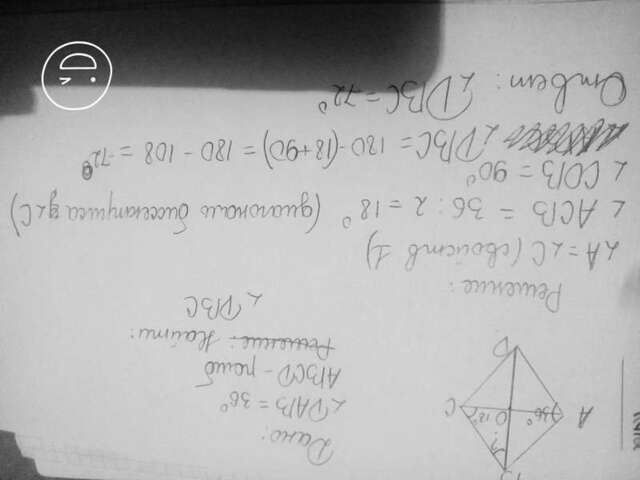 Дано:
∠DAB = 36°
ABCD - ромб
Решение: Найти:
∠DBC
A 36° O 18° C
?
D
Решение:
∠A = ∠C (свойств 1)
∠ACB = 36 : 2 = 18° (диагональ биссектриса у ∠C)
∠COB = 90°
∠DBC = 180 - (18+90) = 180 - 108 = 72°
Ответ: ∠DBC = 72°